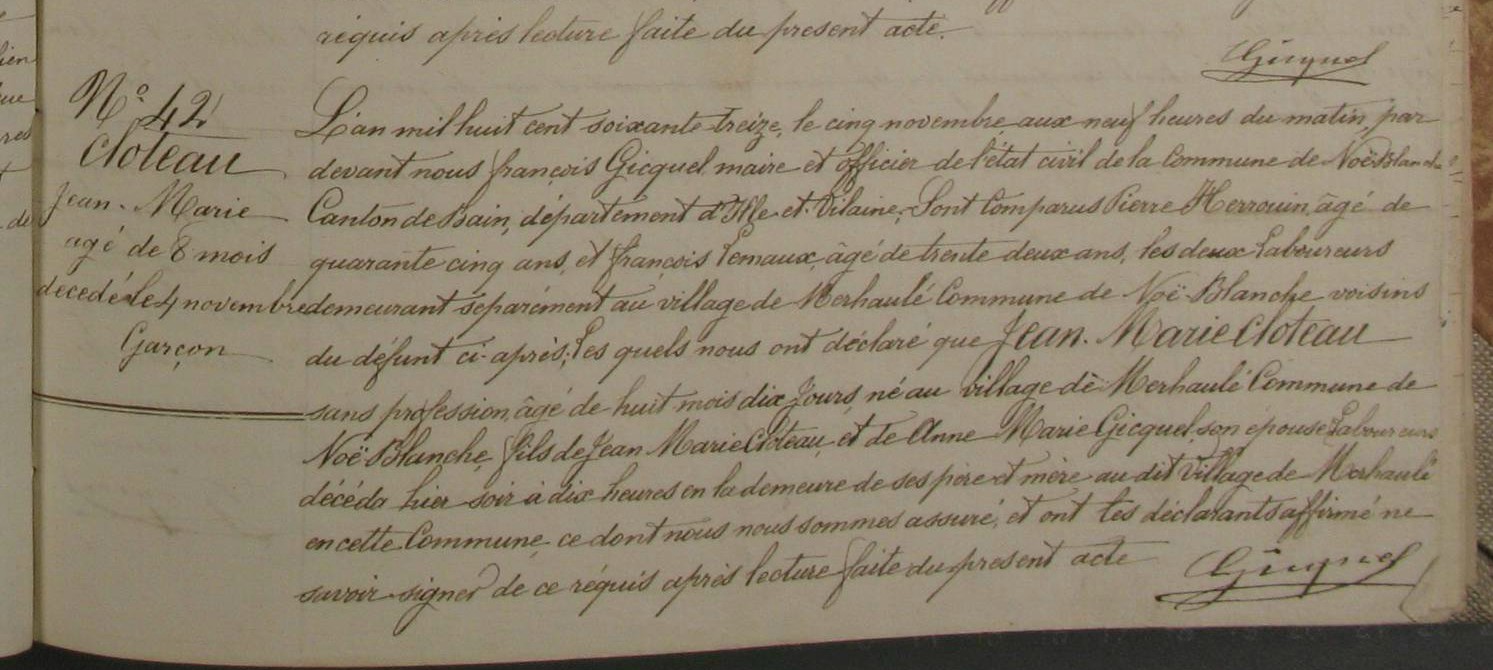 réquis après lecture faite du present acte.
Gicquel
N° 42
Cloteau
Jean-Marie
agé de 8 mois
decedé le 4 novembre
Garçon
L'an mil huit cent soixante treize, le cinq novembre aux neuf heures du matin, par
devant nous françois Gicquel maire et officier de l'état civil de la Commune de Noë Blanche
Canton de Bain, département d'Ille et Vilaine, Sont Comparus Pierre Herrouin, âgé de
quarante cinq ans, et françois Lemaux, âgé de trente deux ans, les deux Laboureurs
demeurant séparément au village de Merhaulé Commune de Noë-Blanche voisins
du défunt ci-après; Les quels nous ont déclaré que Jean-Marie Cloteau
sans profession, âgé de huit mois dix Jours, né au village de Merhaulé Commune de
Noë Blanche, fils de Jean Marie Cloteau, et de Anne Marie Gicquel, son épouse Laboureurs
décéda hier soir à dix heures en la demeure de ses père et mère au dit village de Merhaulé
en cette Commune, ce dont nous nous sommes assuré, et ont les déclarants affirmé ne
savoir signer de ce réquis après lecture faite du present acte
Gicquel